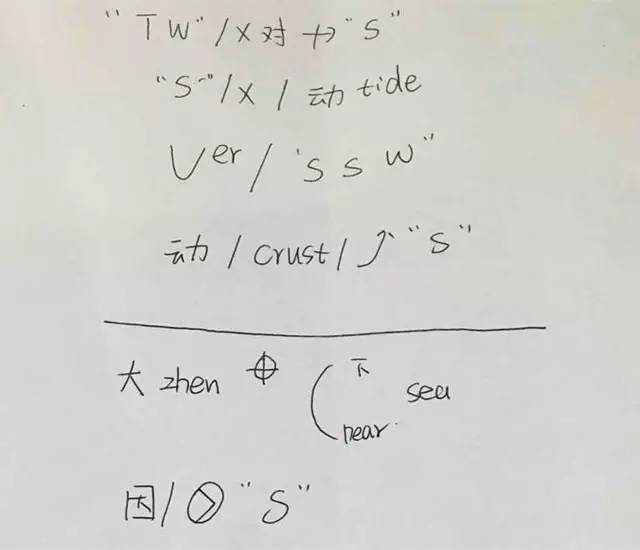 "TW"/x对 → "S"
"S"/x/动tide
Ver/'s s w"
动/crust/⤴"S"
大zhen ⊕ ( 下 sea
near
因/"S"